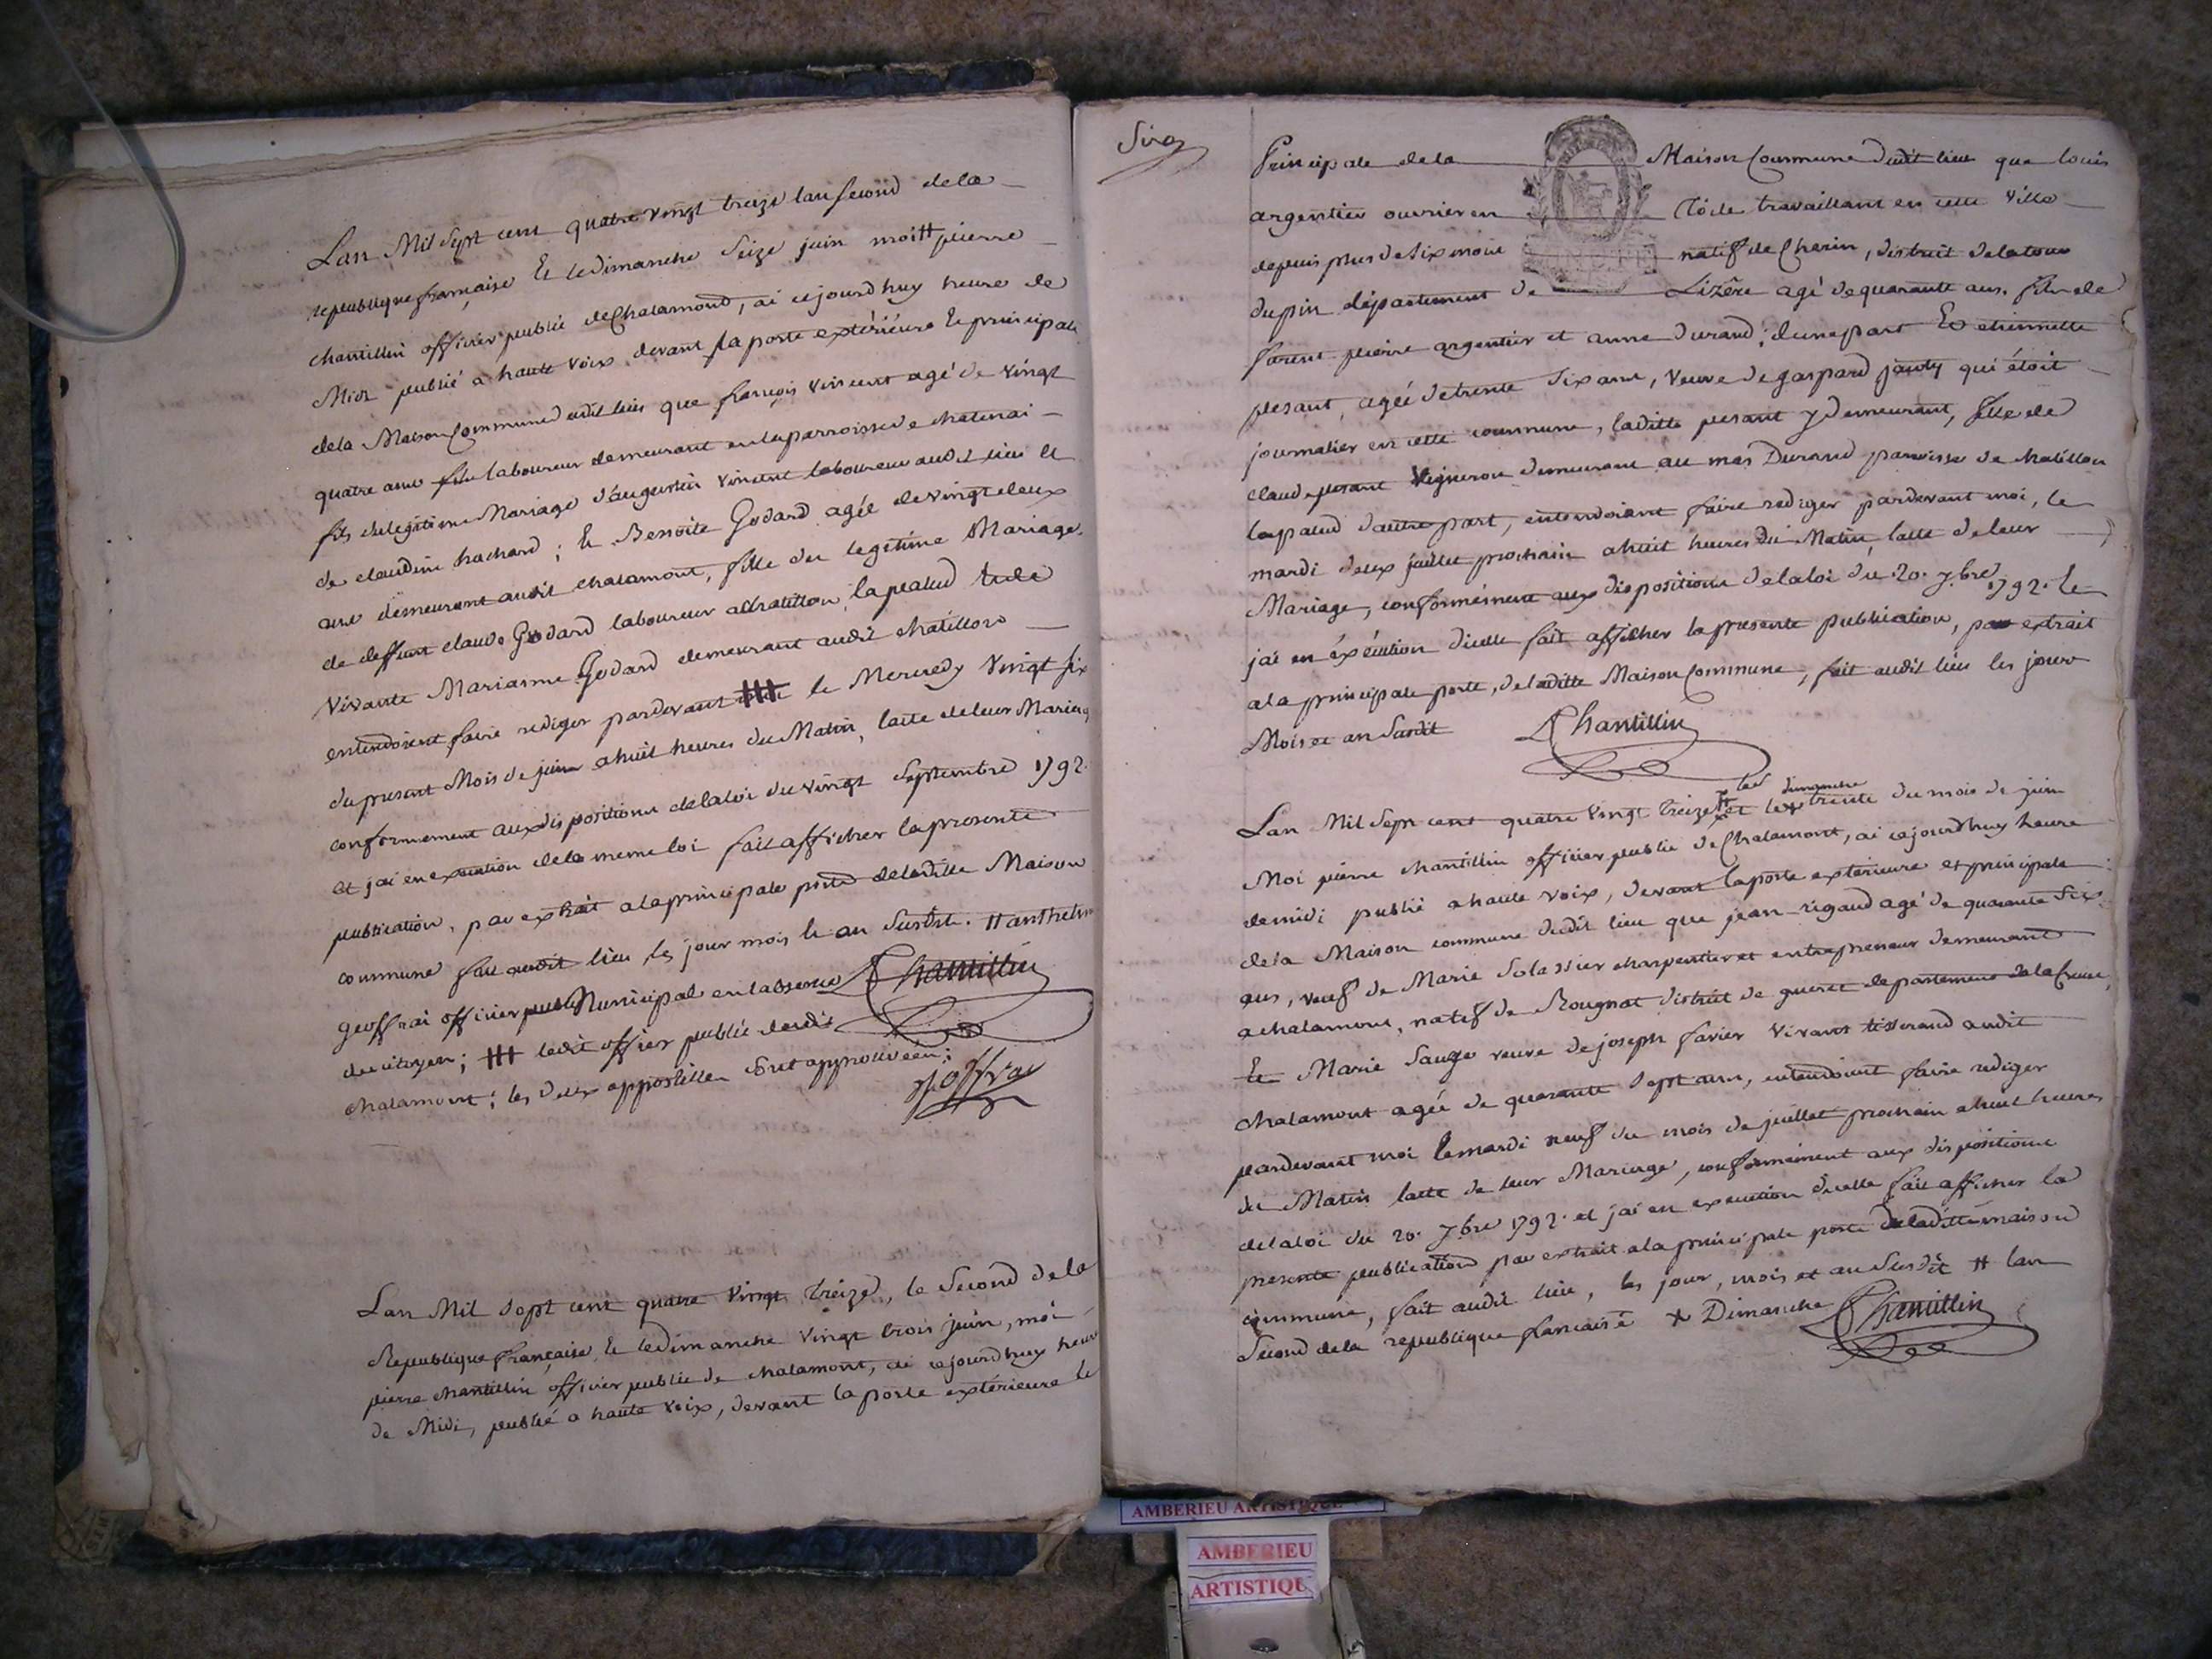 Lan Mil Sept cent quatre vingt treize lan second dela
republique française Et le dimanche Seize juin moi # pierre
chantillin officier public de Chalamond, ai cejourdhuy heure de
Midi publié a haute voix devant la porte extérieure Et principale
dela Maison Commune dudit lieu que françois Vincent agé de vingt
quatre ans laboureur demeurant en la parroisse de chatenai
fils du legitime Mariage d'augustin Vincent laboureur audit lieu et
de claudine hachard ; Et Benoite Godard agée de vingt deux
ans demeurant audit chalamont, fille du legitime Mariage
de deffunt claude Godard laboureur a chatillon la palud et de
vivante Marianne Godard demeurant audit chatillon
entendoient faire rediger pardevant ## le Mercredy vingt six
du present Mois de juin a huit heures du Matin, lacte de leur Mariage
conformement aux dispositions de la loi du vingt Septembre 1792.
et jai en execution de la meme loi fait afficher la presente
publication, par extrait a la principale porte de laditte Maison
commune fait audit lieu les jour mois et an Susdit. # anthelme
geoffrai officier public Municipal en labsence Chantillin
du citoyen ; ## ledit officier public dudit
chalamont ; les deux appostilles sont approuvées ;
joffray
Lan Mil Sept cent quatre Vingt Treize, le Second de la
Republique française, Et le dimanche vingt trois juin, moi
pierre chantillin officier public de chalamont, ai cejourdhuy heure
de Midi, publié a haute voix, devant la porte extérieure Et
Principale dela Maison Commune dudit lieu que louis
argentier ouvrier en Toile travaillant en cette Ville
depuis plus de Six mois natif de Cherin, district de la tour
dupin département de Lizêre agé de quarante ans. fils de
pierre argentier et anne durand ; dune part Et etiennette
pesant, agée de trente Six ans, Veuve de gaspard qui étoit
journalier en cette commune, laditte pesant y demeurant, fille de
claude pesant Vigneron demeurant au mas Durand parroisse de chatillon
lapalud dautre part, entendoient faire rediger pardevant moi, le
mardi deux juillet prochain a huit heures du Matin, lacte de leur
Mariage, conformément aux dispositions de la loi du 20. 7bre 1792. Et
jai en éxécution dicelle fait afficher la presente publication, par extrait
a la principale porte, de laditte Maison Commune, fait audit lieu les jour
Mois et an Susdit Chantillin
dimanche
Lan Mil Sept cent quatre Vingt Treize # et le trente du mois de juin
Moi pierre chantillin officier public de Chalamont, ai cejourdhuy heure
de midi publié a haute voix, devant la porte extérieure et principale
de la Maison commune dudit lieu que jean rigaud agé de quarante Six
ans, veuf de Marie Solassier charpentier et entrepreneur demeurant
a chalamont, natif de Rougnat district de gueret departement de la Creuse,
Et Marie Sauge veuve de joseph favier vivant tisserand audit
chalamont agée de quarante Sept ans, entendoient faire rediger
pardevant moi le mardi neuf du mois de juillet prochain a huit heures
du Matin lacte de leur Mariage, conformément aux dispositions
de la loi du 20. 7bre 1792. et jai en execution dicelle fait afficher la
presente publication par extrait a la principale porte de laditte maison
commune, fait audit lieu, les jour, mois et an Susdit # lan
Second de la republique francaise x Dimanche Chantillin
AMBERIEU ARTISTIQUE
AMBERIEU
ARTISTIQU